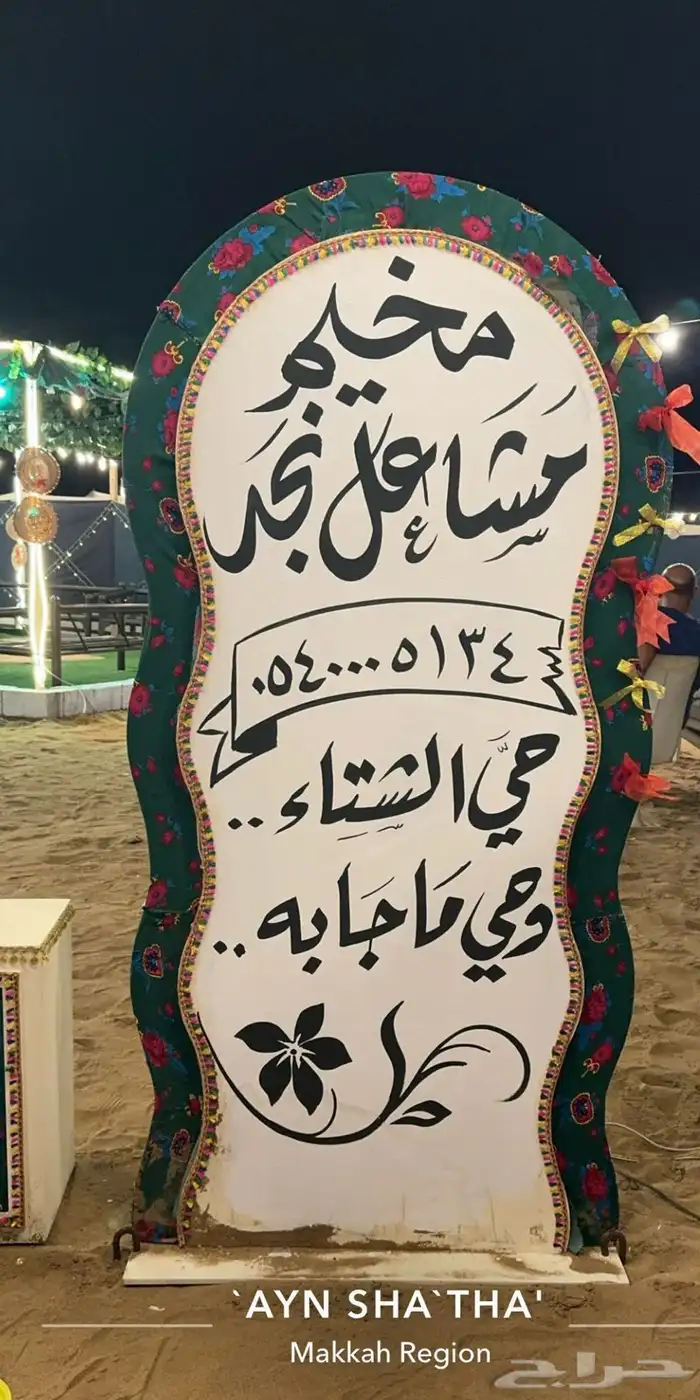 مخيم
مَشَاعل نَجَد
٠٥٤٠٠٠٥١٣٤
حيَّ الشتاء ..
وحي مَا جَابه ..
`AYN SHA`THA'
Makkah Region
حراج